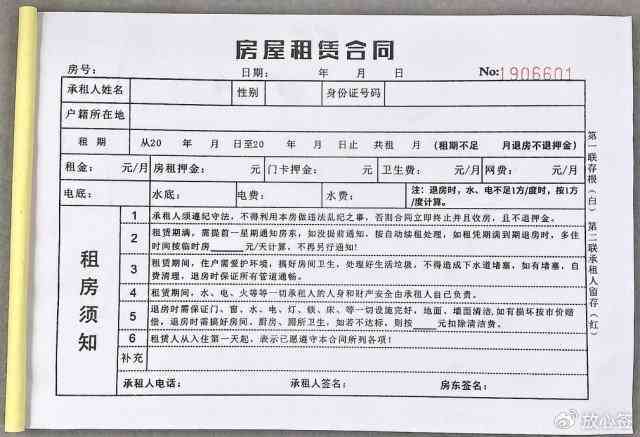 房屋租赁合同
房号： 日期： 年 月 日 No:1906601
承租人姓名 性别 身份证号码
户籍所在地
租期 从20 年 月 日至20 年 月 日止 共租 月 (租期不足 月退房不退押金)
租金： 元/月 房租押金： 元 门卡押金： 元 卫生费： 元/月 网费： 元/月
电底： 水底： 电费： 水费： 注：退房时，水、电不足1方/度时，按1方
/度计算。
租房须知
1 承租人须遵纪守法，不得利用本房做违法乱纪之事，否则合同立即终止并且收房，且不退押金。
2 租赁期满，需提前一星期通知房东，如没提前通知，按自动续租处理，如租凭期满到期退房时，多住
时间按临时房____元/天计算，不再另行通知！
3 租赁期间，住户需爱护环境，搞好房间卫生，处理好生活垃圾，不得造成下水道堵塞，如有堵塞，自
费清理，退房时保证所有管道通畅。
4 租赁期间，水、电、火等等一切承租人的人身和财产安全由承租人自己负责。
5 退房时需保证门、窗、水、电、灯、锁、床、等一切设施完好，地面、墙面清洁，如有损坏按市价赔
偿，退房时需搞好房间、厨房、厕所卫生，如若不达标，则按____元扣除清洁费。
6 租赁人从入住第一天起，表示已愿遵守本合同所列各项！
补充
承租人电话： 承租人签名： 房东签名：
第一联存根(白) 第二联承租人留存(红)
放心签